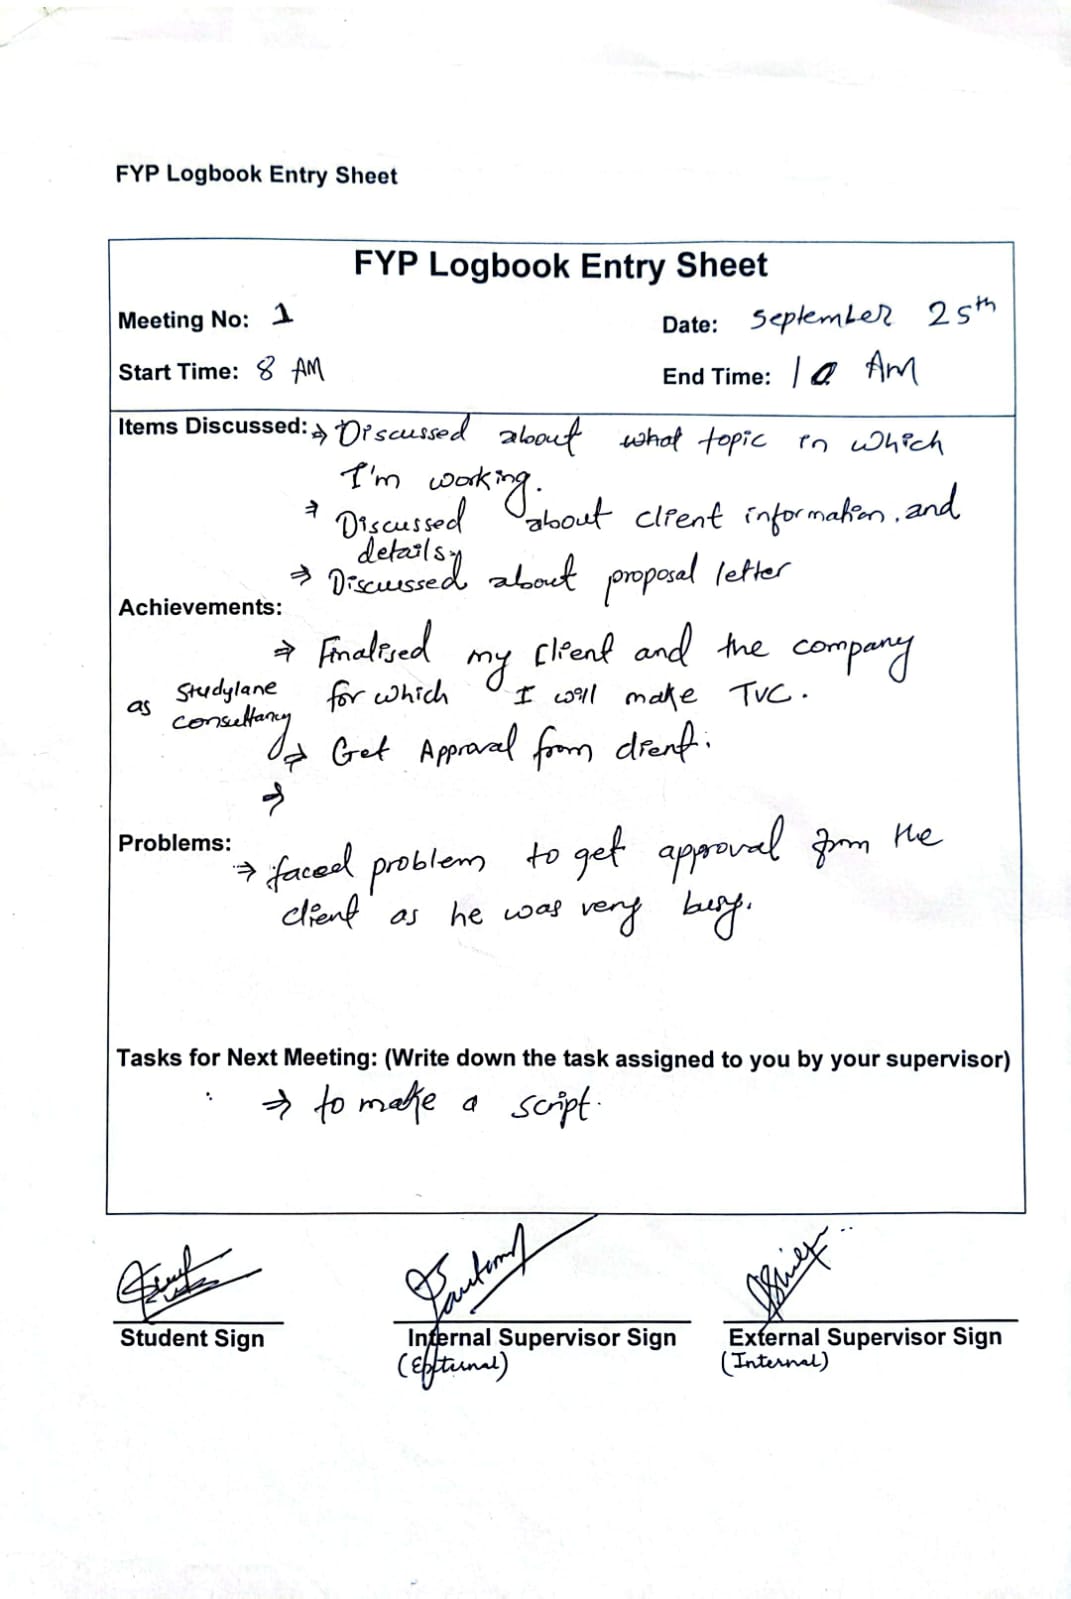 FYP Logbook Entry Sheet
FYP Logbook Entry Sheet
Meeting No: 1
Date: September 25th
Start Time: 8 AM
End Time: 10 AM
Items Discussed: ⇒ Discussed about what topic in which
I'm working.
⇒ Discussed about client information, and
details,
⇒ Discussed about proposal letter
Achievements:
⇒ Finalised my client and the company
as Studylane for which I will make TVC.
consultancy
⇒ Get Approval from client.
⇒
Problems:
⇒ faced problem to get approval from the
client as he was very busy.
Tasks for Next Meeting: (Write down the task assigned to you by your supervisor)
⇒ to make a script.
Student Sign
Internal Supervisor Sign
External Supervisor Sign
(External)
(Internal)